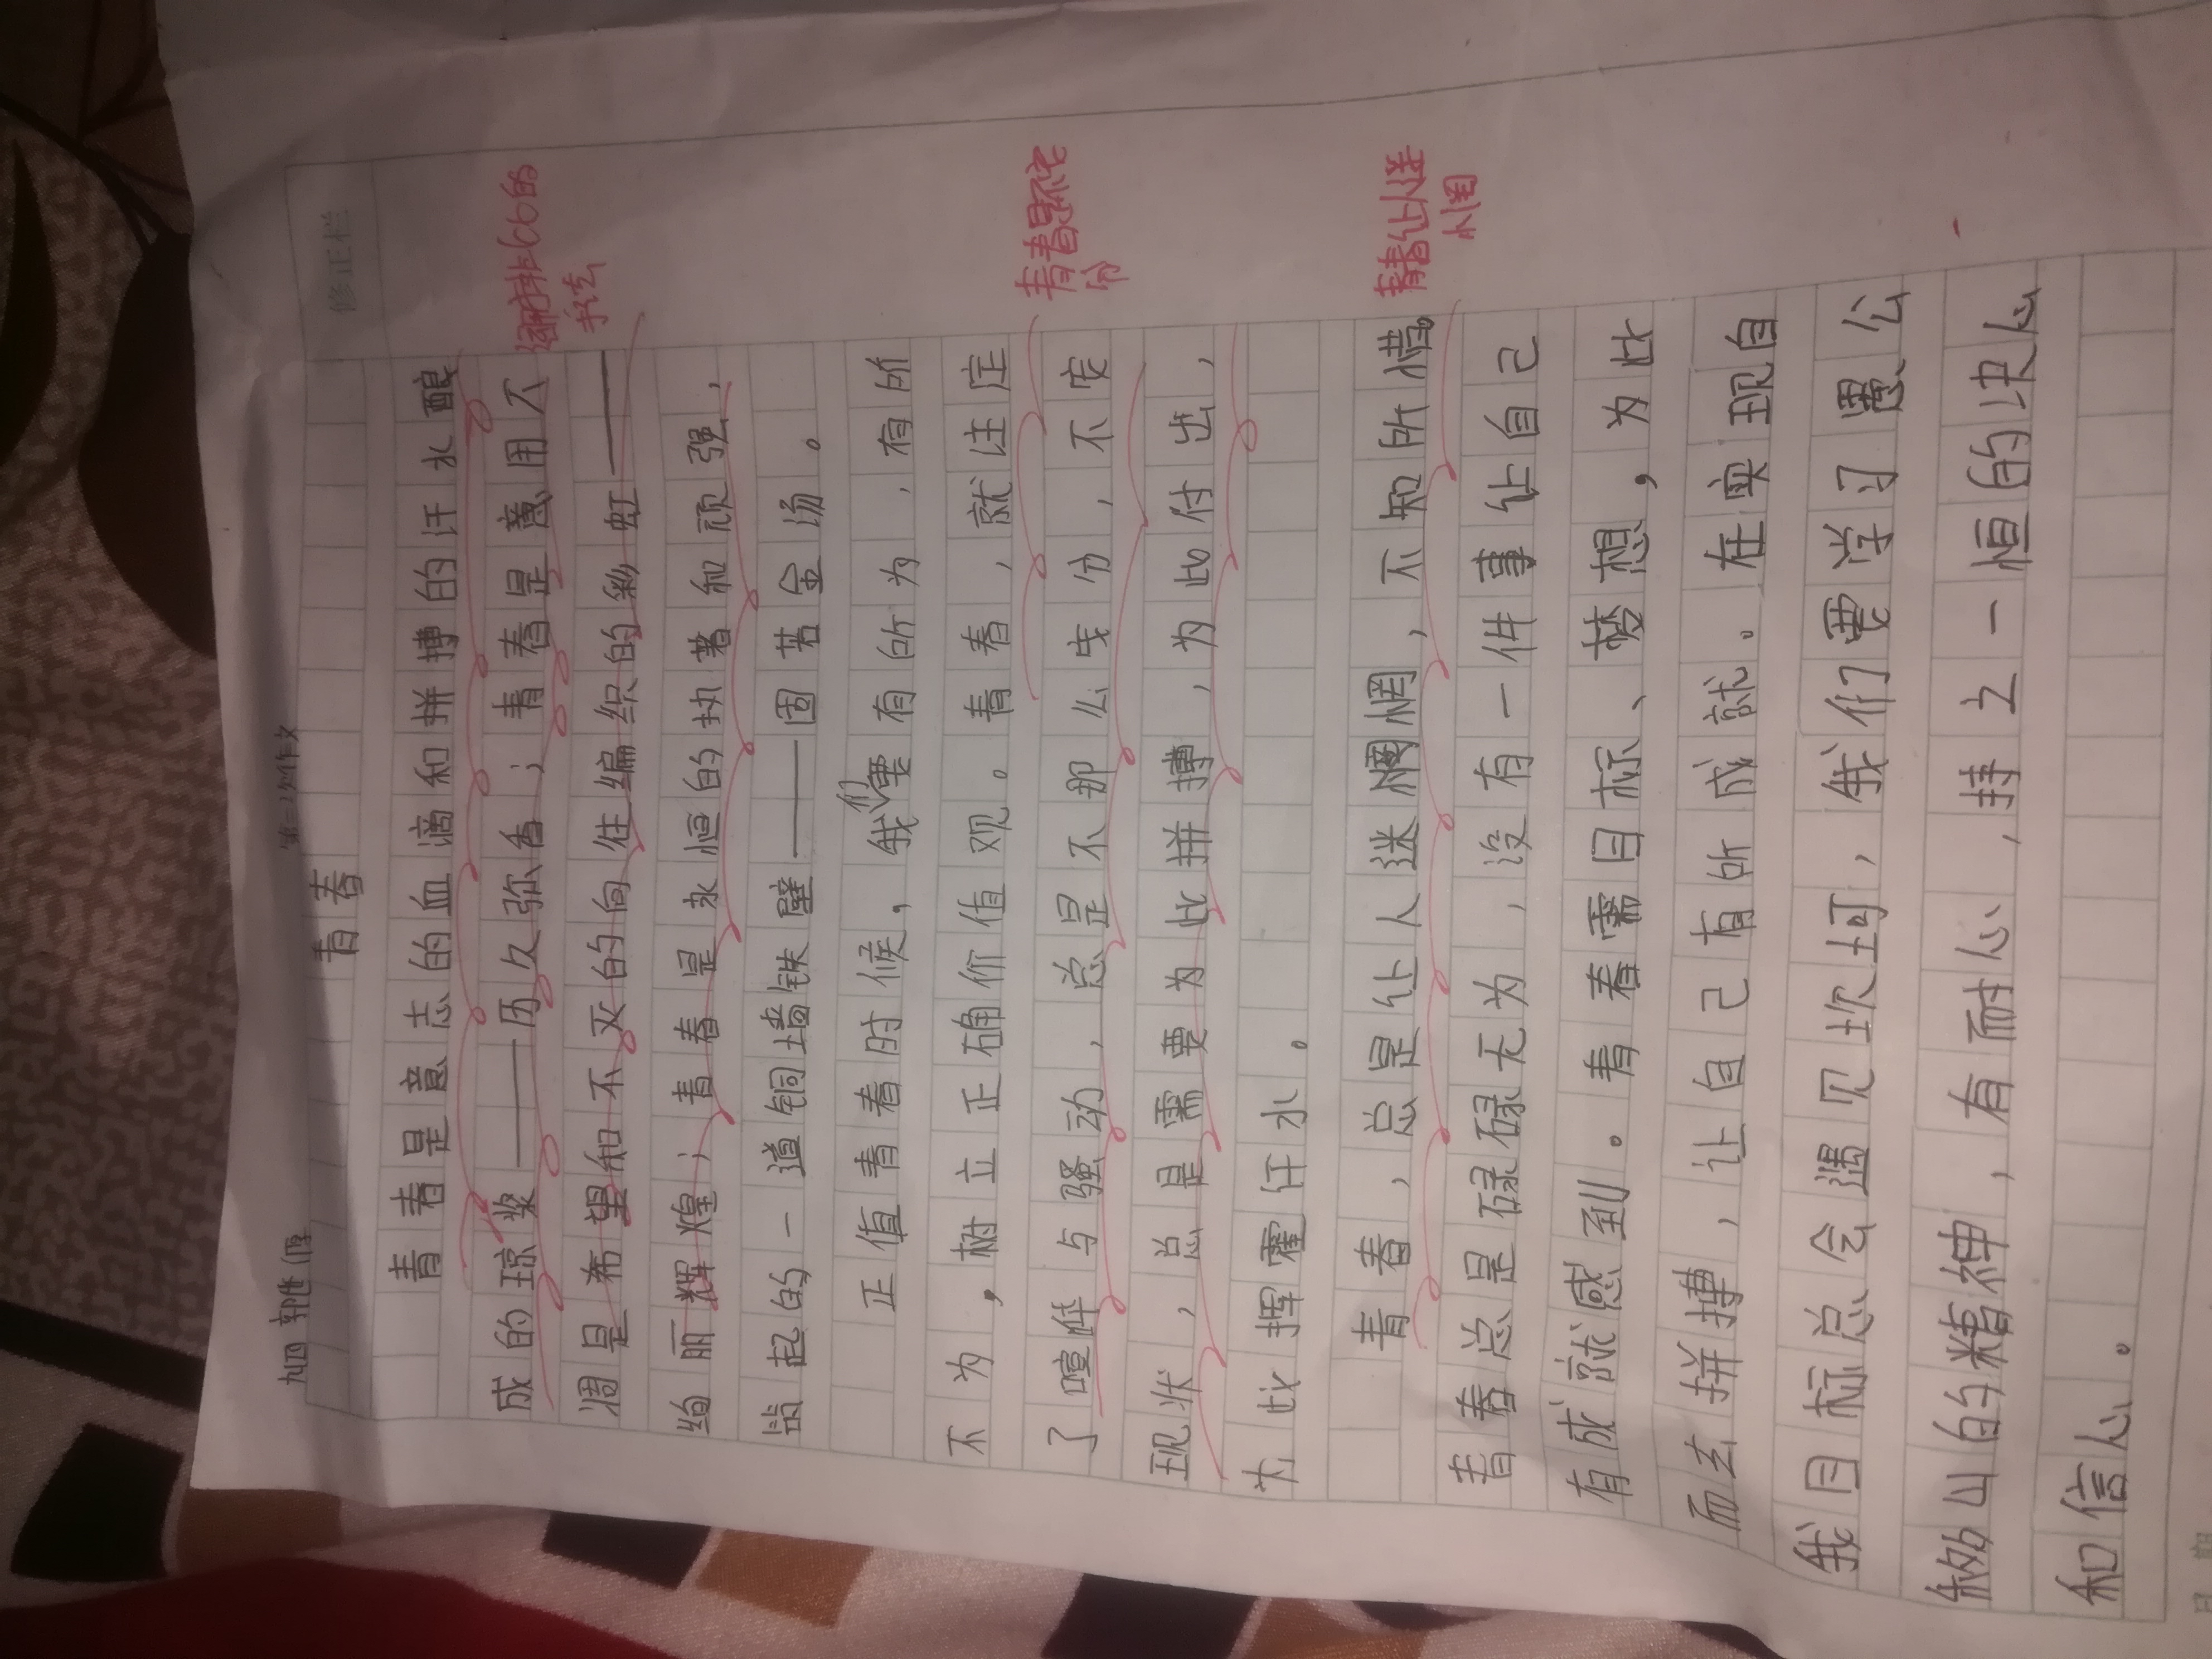 九四 郭世厚 第二次作文
修正栏
青春
青春是意志的血滴和拼搏的汗水酿
成的琼浆——历久弥香；青春是意用不
凋是希望和不灭的向往编织的彩虹——
绚丽辉煌；青春是永恒的执著和顽强，
筑起的一道铜墙铁壁——固若金汤。
运用排比的
手法
正值青春时候，我们要有所为，有所
不为，树立正确价值观。青春，就注定
了喧哗与骚动，总是不那么安分，不安
现状，总是需要为此拼搏，为此付出，
为此挥霍汗水。
青春是不安
分
青春，总是让人迷惘，不知所措。
青春总是碌碌无为，没有一件事让自己
有成就感到。青春需目标、梦想，为此
而去拼搏，让自己有所成就。在实现自
我目标总会遇见坎坷，我们要学习愚公
移山的精神，有耐心，持之一恒的决心
和信心。
青春让人迷
惘